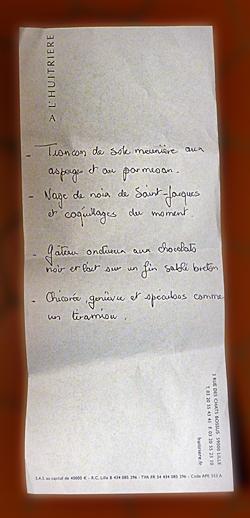 A L'HUITRIERE
- Tronçon de sole meunière aux
asperges et au parmesan.
- Nage de noix de Saint-Jacques
et coquillages du moment
- Gâteau onctueux aux chocolats
noir et lait sur un fin sablé breton
- Chicorée, genièvre et spéculoos comme
un tiramisu.
3 RUE DES CHATS BOSSUS 59000 LILLE
T. 03 20 55 43 41 F. 03 20 55 23 10
huitriere.fr
S.A.S au capital de 40000 € - R.C. Lille B 434 085 296 - TVA FR 54 434 085 296 - Code APE 553 A